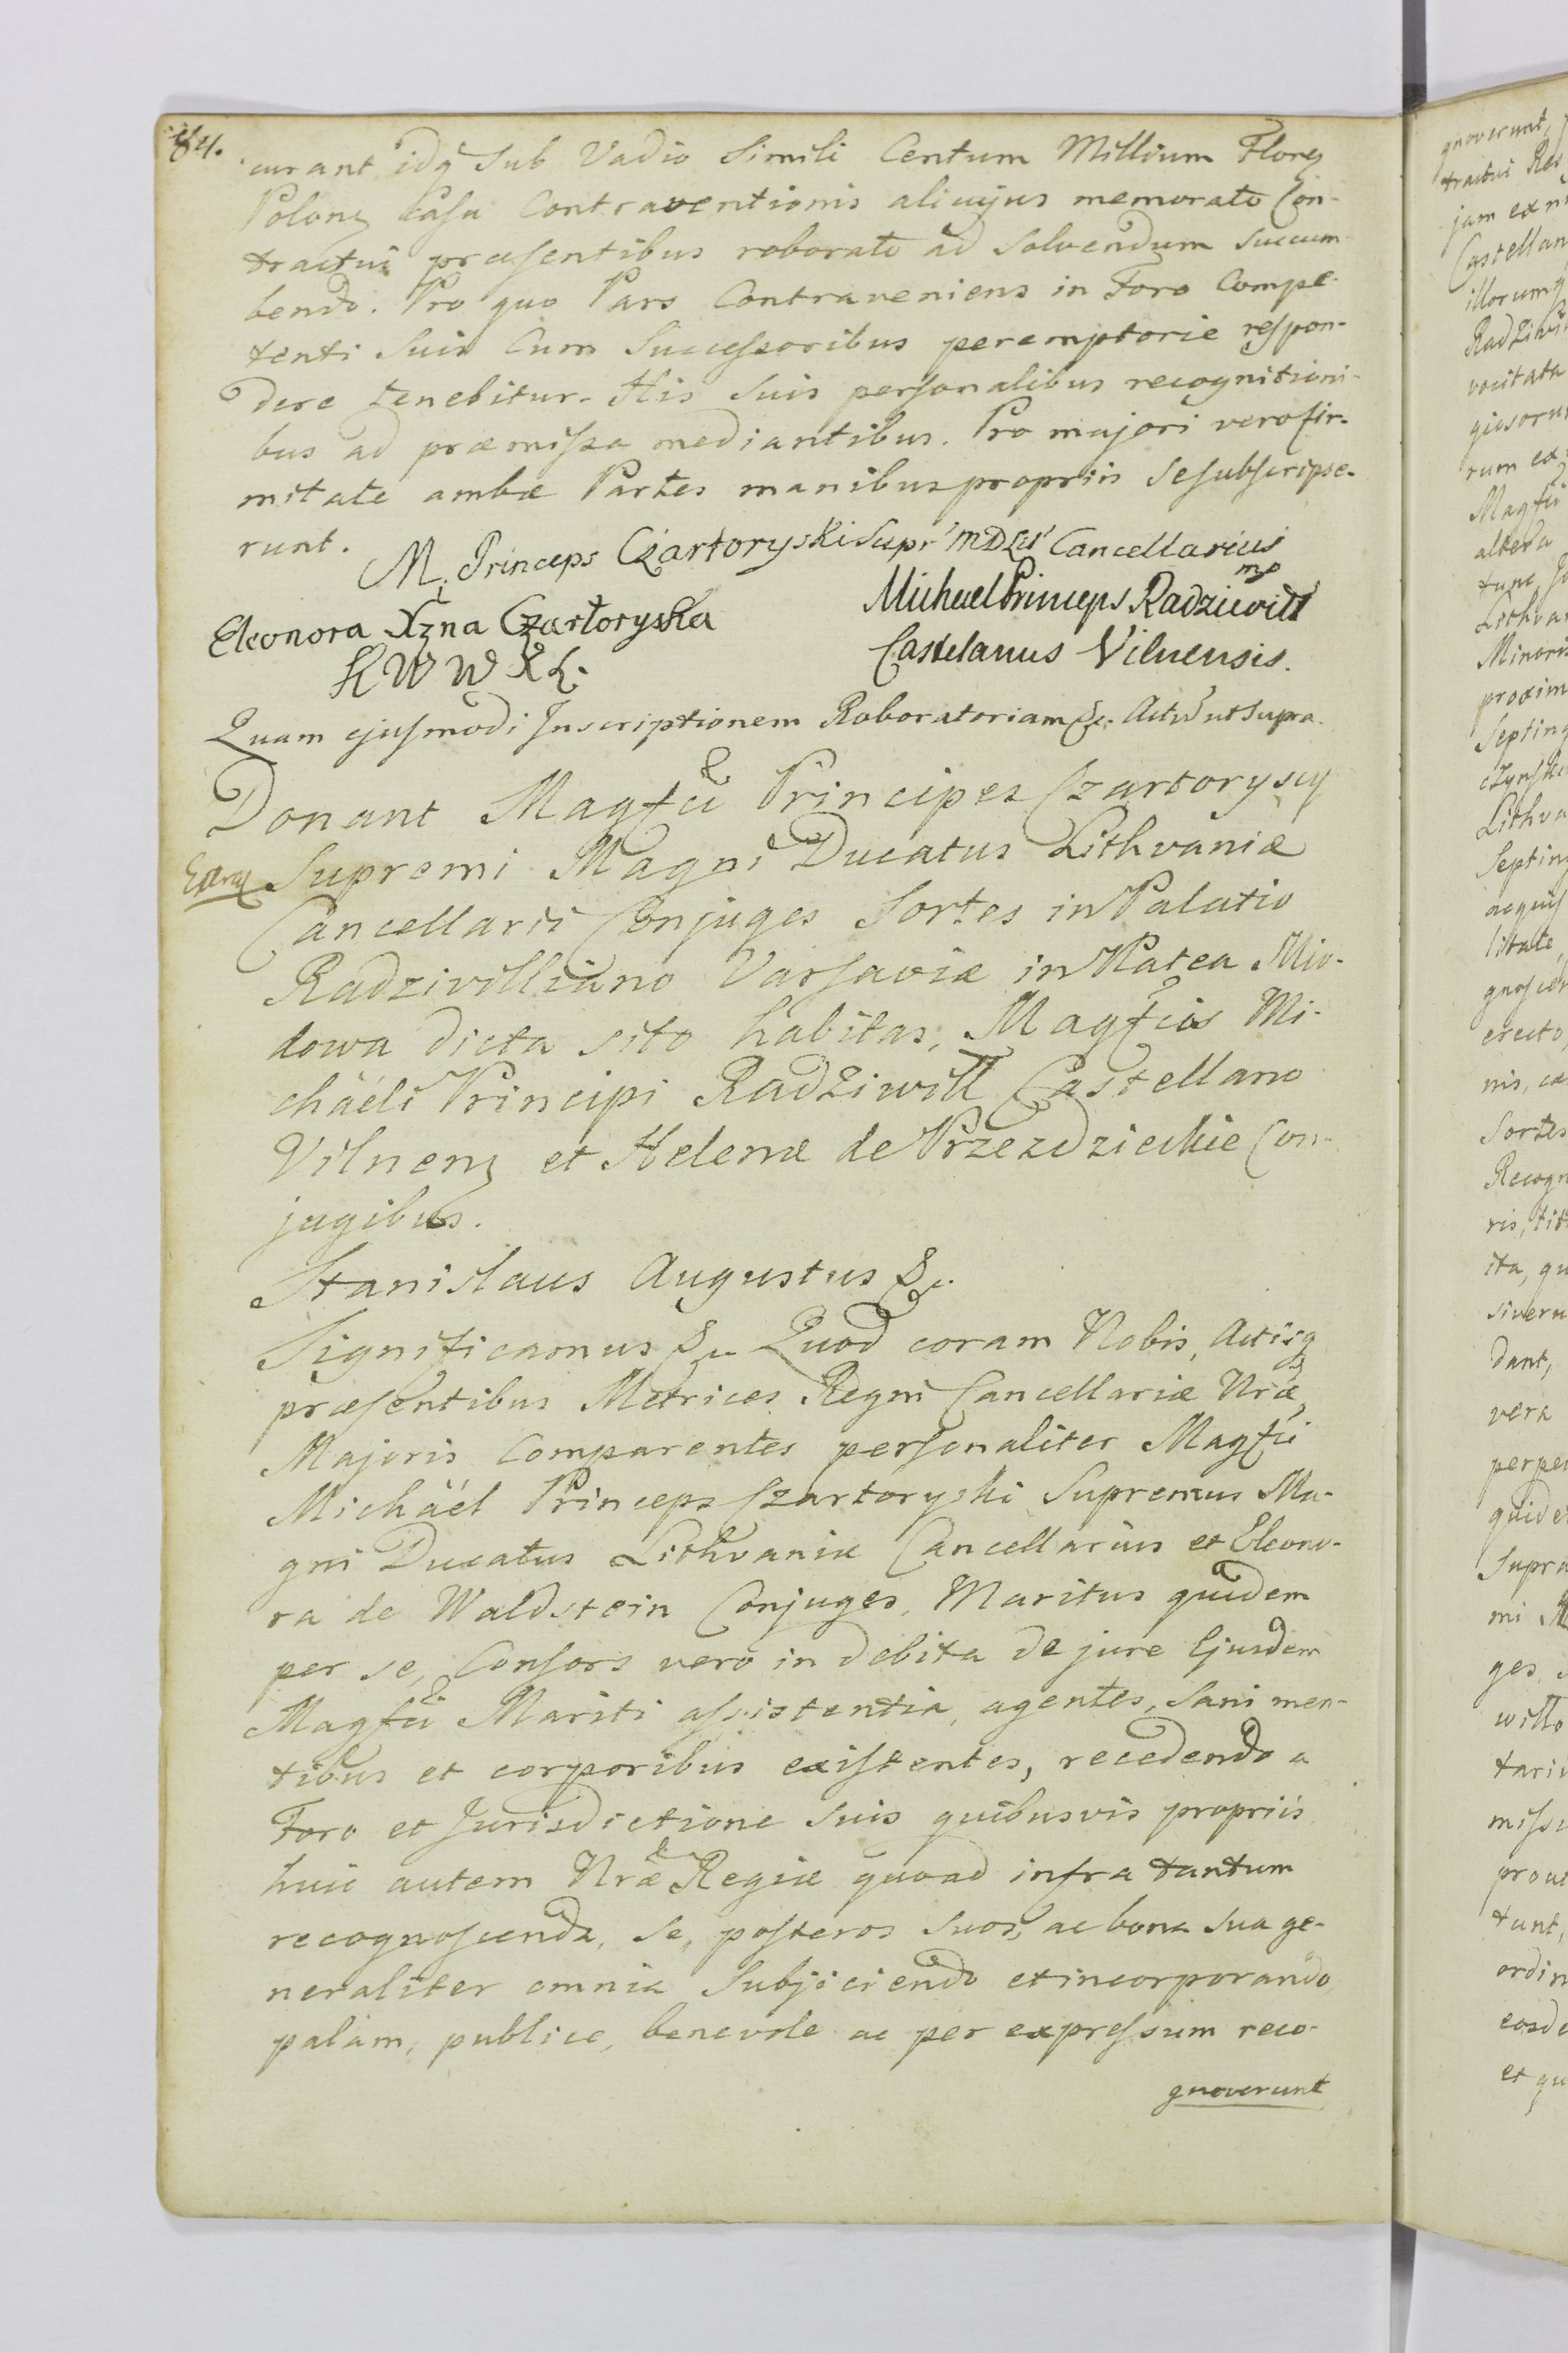 84.
curant, idq̃ sub Vadio simili Centum Millium Floreñ
Polonɀ casu Contraventionis alicujus memorato Con-
tractui præsentibus roborato ad solvendum succum-
bendo. Pro quo Pars Contraveniens in Foro Compe-
tenti suis Cum Successoribus peremptorie respon-
dere tenebitur. His suis personalibus recognitioni-
bus ad præmissa mediantibus. Pro majori vero fir-
mitate ambæ Partes manibus propriis se subscripse-
runt.
M. Princeps Czartoryski Supr' MDLit' Cancellarius
mp
Eleonora Xzna Czartoryska
K W W X L.
Michael Princeps Radziwill
Castelanus Vilnensis.
Quam ejusmodi Inscriptionem Roboratoriam &c. Actu ut supra.
Donant Magfci Principes Czartoryscy
Supremi Magni Ducatus Lithvaniæ
Cancellarii Conjuges Sortes in Palatio
Radzivilliano Varsaviæ in Platea Mio-
dowa dicta sito habitas, Magfcis Mi-
chäeli Principi Radziwill Castellano
Vilnenɀ et Helenæ de Przezdzieckie Con-
jugibus.
Stanislaus Augustus &c.
Significamus &c. Quod coram Nobis, Actisq̃
præsentibus Metrices Regni Cancellariæ Nr̃æ
Majoris Comparentes personaliter Magfci
Michäel Princeps Czartoryski Supremus Ma-
gni Ducatus Lithvaniæ Cancellarius et Eleono-
ra de Waldstein Conjuges, Maritus quidem
per se, Consors vero in debita de jure Ejusdem
Magfci Mariti assistentia, agentes, sani men-
tibus et corporibus existentes, recedendo a
Foro et Jurisdictione suis quibusvis propriis
huic autem Nr̃æ Regiæ quoad infra tantum
recognoscenda, se, posteros suos, ac bona sua ge-
neraliter omnia Subjiciendo et incorporando,
palam, publice, benevole ac per expressum reco-
gnoverunt
gnoverunt,
tractui
jam ex
Castellan
Radziwi
vocitata
rum ex
altera
tunc
Lithva
Minoris
proxim
septing
Lithva
septing
acquis
erecto,
sortes
Recogn
ris,
ita, qu
siveru
dant,
vera
perpe
quide
supra
mi
ges,
willo
tariu
missu
tunt,
ordin
et qu